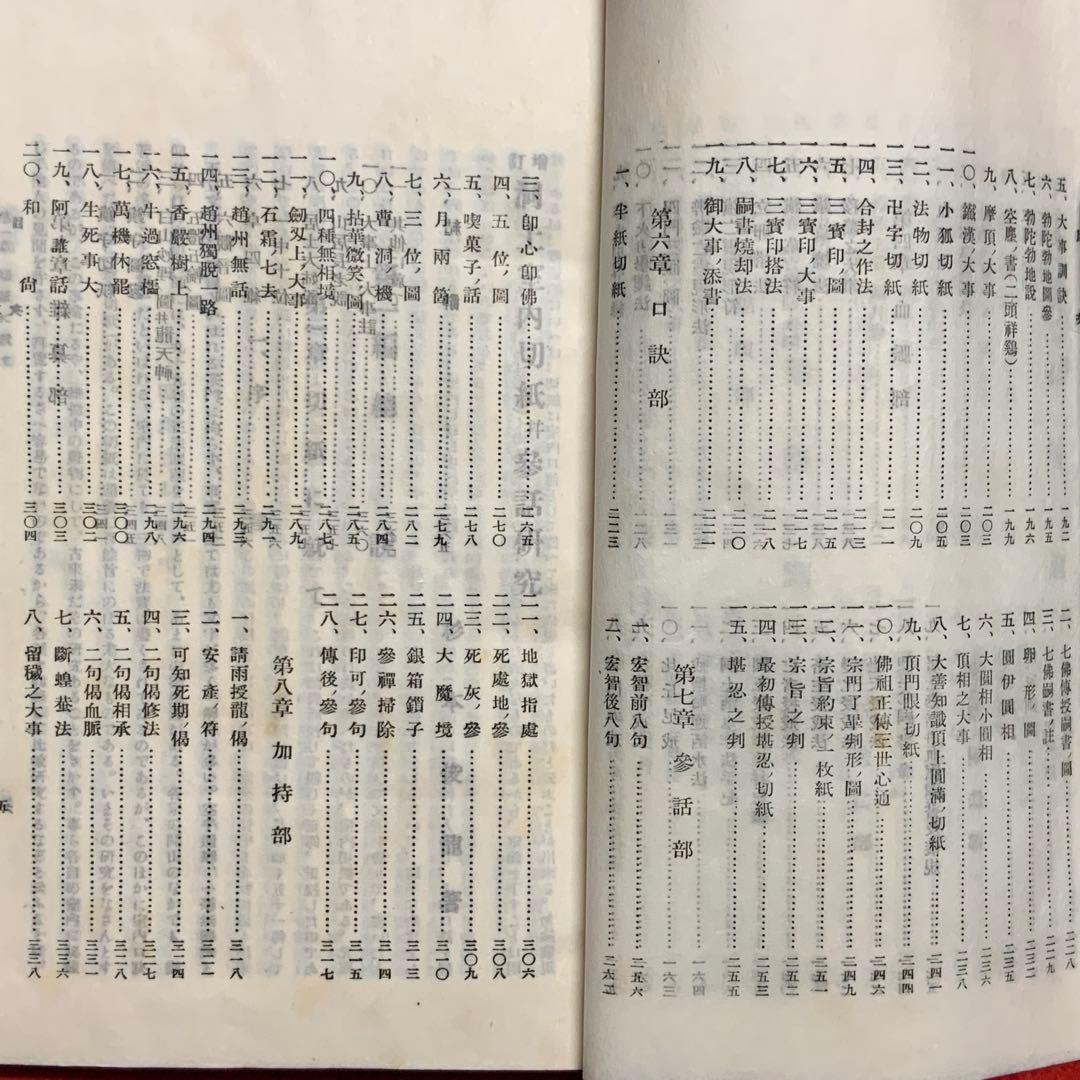 五、大事訓訣……一九二
六、勃陀勃地圖參……一九五
七、勃陀勃地說……一九六
八、(二頭祥鷄)……一九九
九、摩頂大事……二〇三
一〇、鐵漢大事……二〇三
一一、小狐切紙……二〇五
一二、法物切紙……二〇九
一三、卍字切紙……二一一
一四、合封之作法……二一三
一五、三寶印ノ圖……二一五
一六、三寶印ノ大事……二一七
一七、三寶印搭法……二一八
一八、嗣書燒却法……二二〇
一九、御大事ノ添書……二二一
第六章 口訣部
一、切紙……二二三
二、七佛傳授嗣書ノ圖……二二八
三、七佛嗣書ノ註……二二九
四、卵形ノ圖……二三二
五、圓伊圓相……二三五
六、大圓相小圓相……二三六
七、頂相之大事……二三八
八、大善知識頂上圓滿ノ切紙……二四一
九、頂門眼ノ切紙……二四四
一〇、佛祖正傳三世心通……二四六
一一、宗門了畢判形ノ圖……二四九
一二、宗旨約束ノ一枚紙……二五一
一三、宗旨之判……二五二
一四、最初傳授堪忍ノ切紙……二五三
一五、堪忍之判……二五五
第七章 參話部
一、宏智前八句……二五六
二、宏智後八句……二六二
三、卽心卽佛……二六五
四、五位ノ圖……二七〇
五、喫菓子ノ話……二七八
六、月兩箇……二七九
七、三位ノ圖……二八二
八、曹洞ノ機……二八四
九、拈華微笑ノ圖……二八五
一〇、四種無相境……二八七
一一、劔刄上ノ大事……二八九
一二、石霜ノ七去……二九一
一三、趙州無話……二九三
一四、趙州獨脫一路……二九四
一五、香嚴樹上……二九六
一六、牛過窓櫺……二九八
一七、萬機休罷……三〇〇
一八、生死事大……三〇二
一九、阿誰話……三〇三
二〇、和尙……三〇四
二一、地獄指處……三〇六
二二、死處地ノ參……三〇八
二三、死灰ノ參……三〇九
二四、大魔境……三一〇
二五、銀箱鎖子……三一三
二六、參禪掃除……三一四
二七、印可ノ參句……三一五
二八、傳後ノ參句……三一七
第八章 加持部
一、請雨授龍ノ偈……三一八
二、安產ノ符……三二二
三、可知死期ノ偈……三二四
四、二句偈修法……三二七
五、二句偈相承……三二八
六、二句偈血脈……三三一
七、斷蝗蟲法……三三六
八、留穢之大事……三三八
五